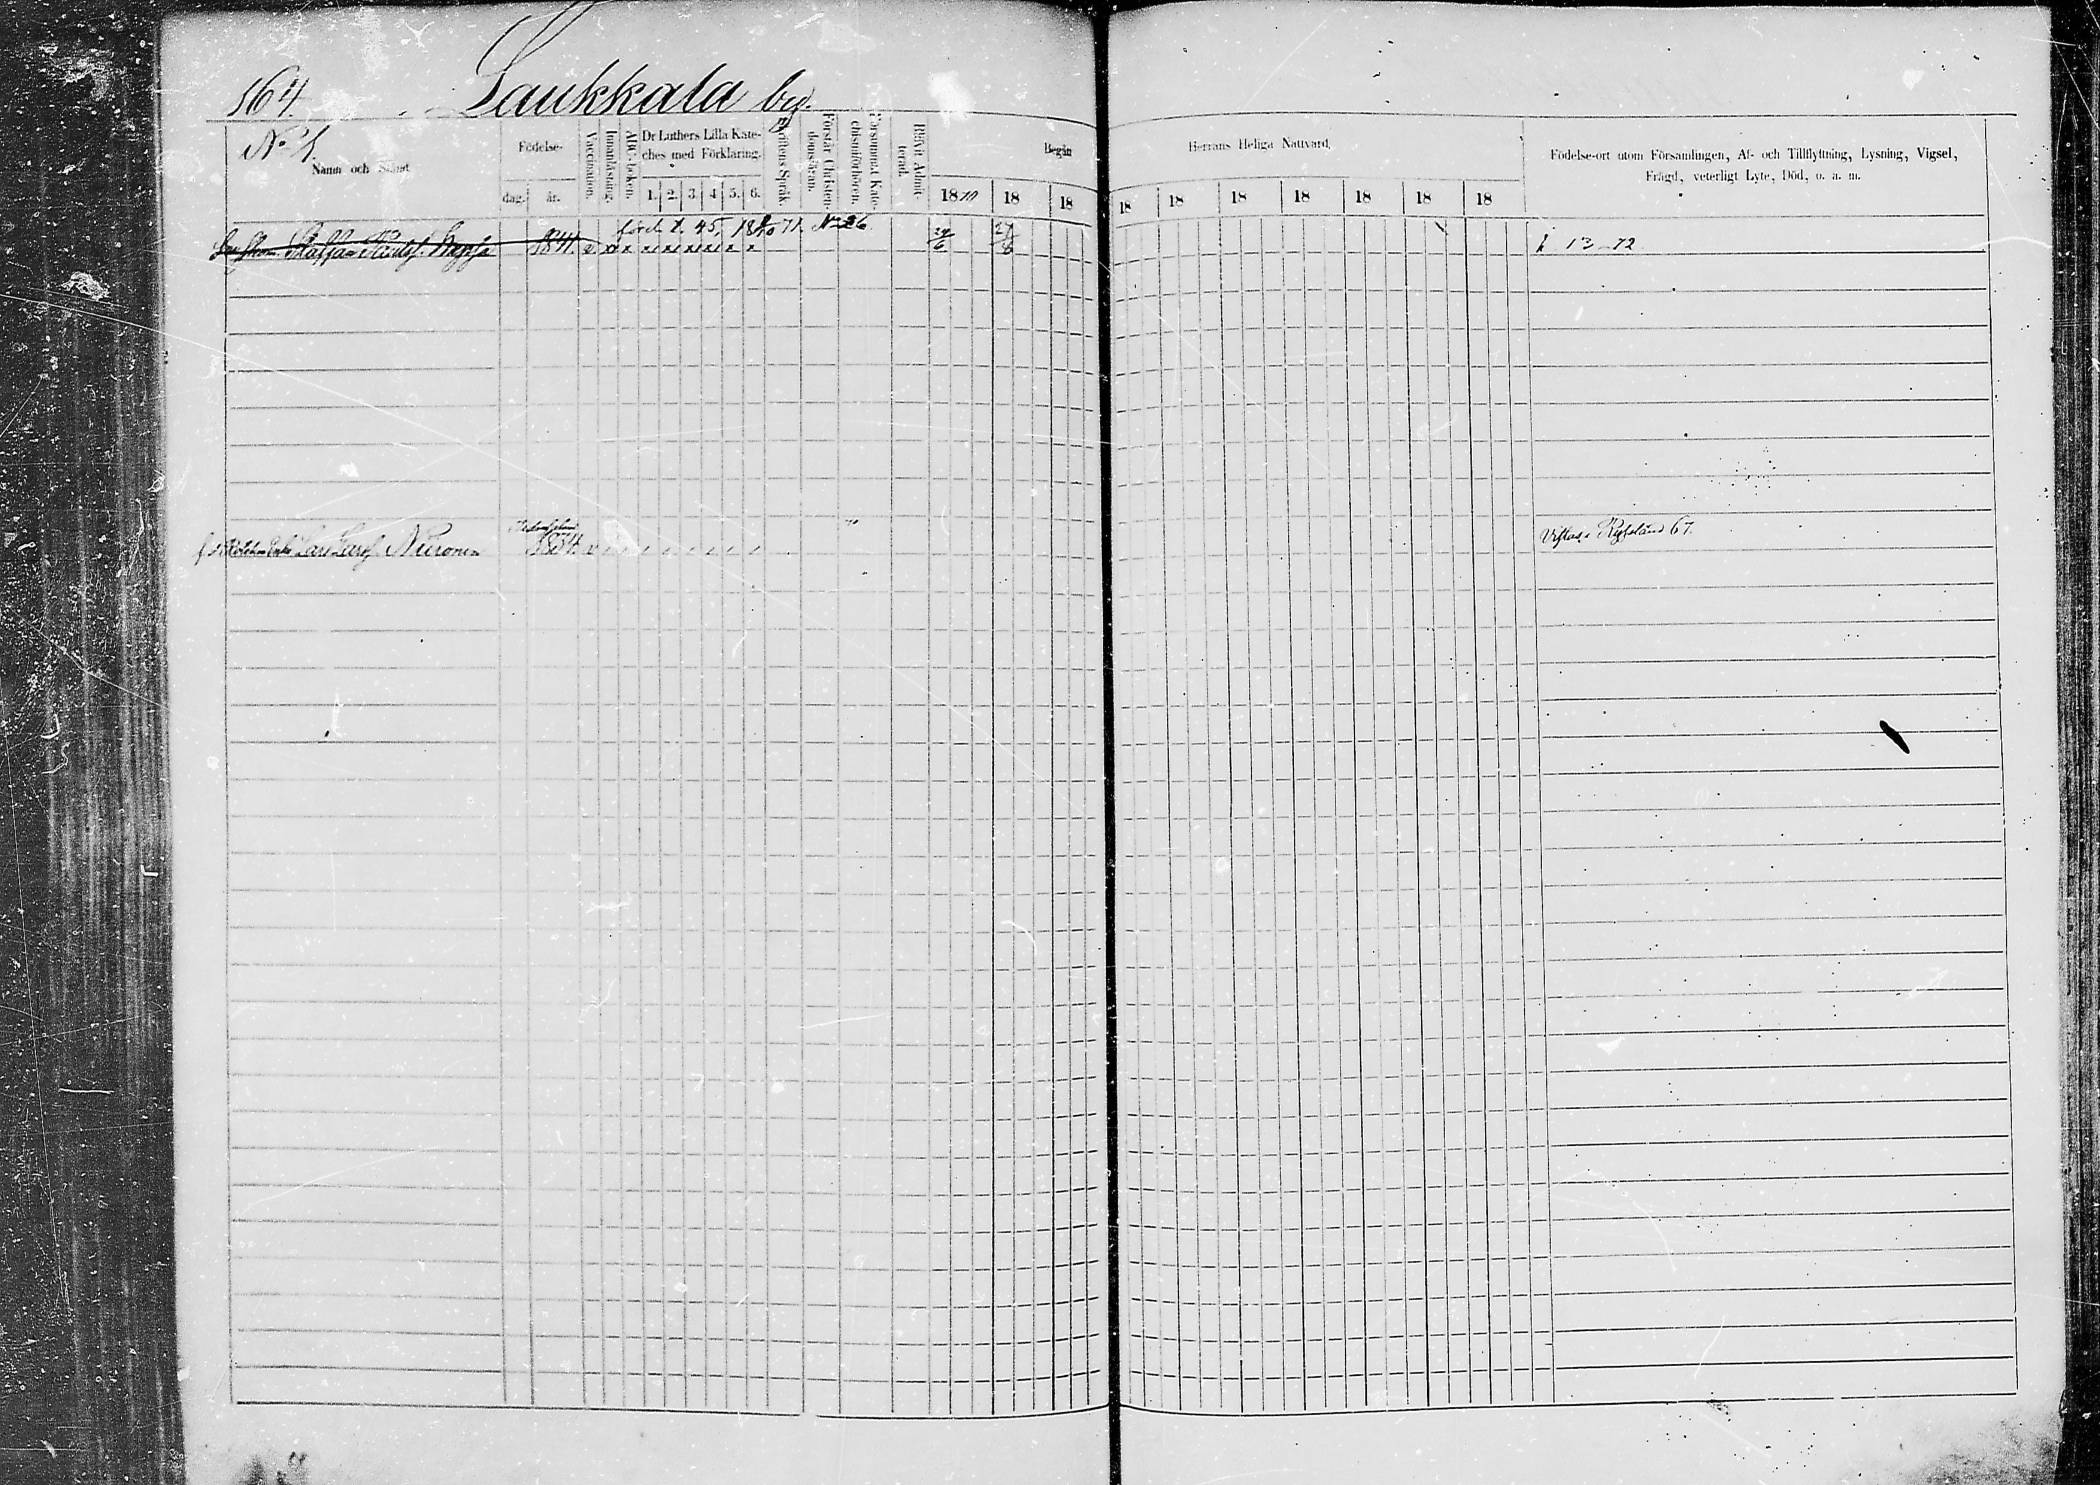 164.
Laukkala by.
No 4.
Namn och Stånd
Födelse-
dag. år.
Vaccination.
Innanläsning.
ABC-boken.
Dr Luthers Lilla Kate-
ches med Förklaring.
1. 2. 3. 4 5. 6.
Skriftens Språk.
Förstår Christen-
domsläran.
Försummat Kate-
chismiförhören.
Blifvit Admit-
terad.
Begån
1870 18 18
Herrans Heliga Nattvard.
18 18 18 18 18 18 18
Födelse-ort utom Församlingen, Af- och Tillflyttning, Lysning, Vigsel,
Frägd, veterligt Lyte, Död, o. a. m.
1841. v. x x x x x x x x
24/6 24/6
13 72
Lars Larsf. Nuronen 1834
Vistas i Ryssland 67.